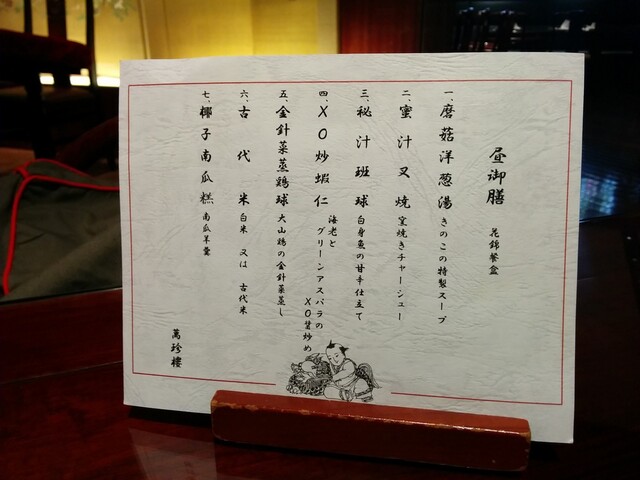 昼御膳 花錦餐盒
一、磨菇洋葱湯 きのこの特製スープ
二、蜜汁叉焼 窯焼きチャーシュー
三、秘汁班球 白身魚の甘辛仕立て
四、XO炒蝦仁 海老と
グリーンアスパラのXO醤炒め
五、金針菜蒸鶏球 大山鶏の金針菜蒸し
六、古代米 白米 又は 古代米
七、椰子南瓜糕 南瓜羊羹
萬珍樓